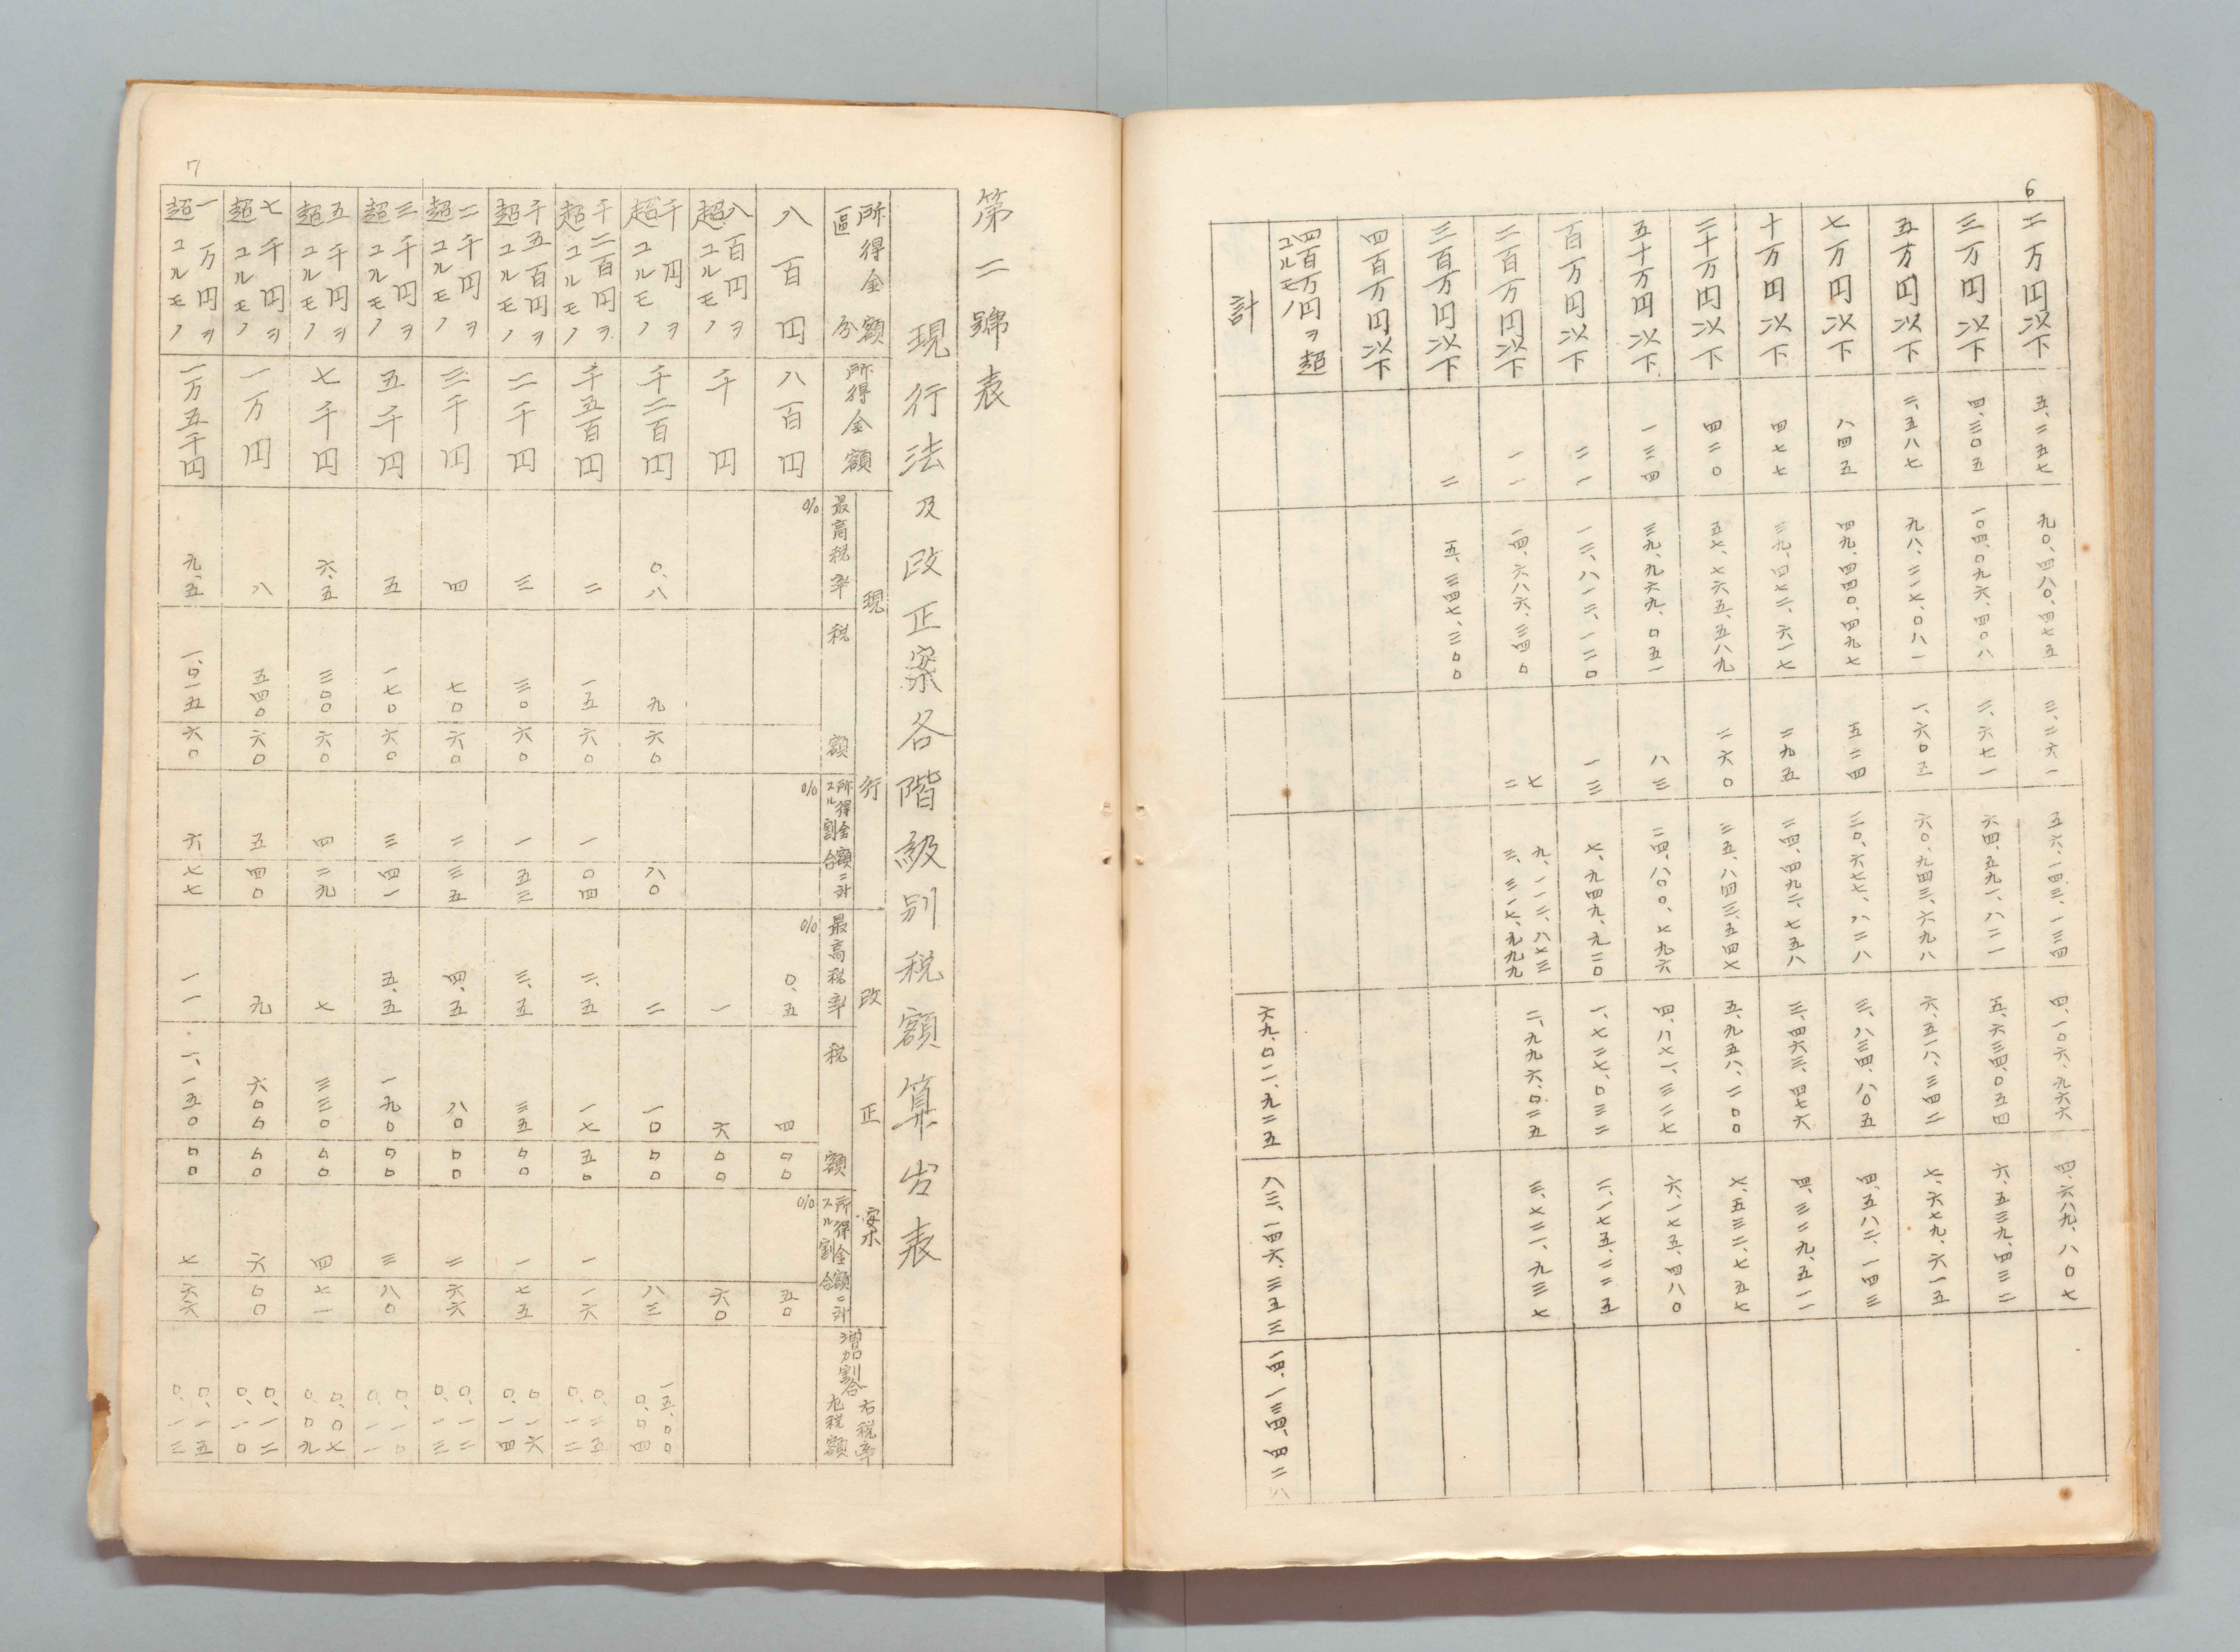 6
二万円以下 五、二五七 九〇、四八〇、四七五 三、二六一 五六、一四三、一三四 四、一〇六、九六六 四、六八九、八〇七
三万円以下 四、三〇五 一〇四、〇九六、四〇八 二、六七一 六四、五九一、八二一 五、六三四、〇五四 六、五三九、四三二
五万円以下 二、五八七 九八、二一七、〇八一 一、六〇五 六〇、九四三、六九八 六、五一八、三四二 七、六七九、六一五
七万円以下 八四五 四九、四四〇、四九七 五二四 三〇、六七七、八二八 三、八三四、八〇五 四、五八二、一四三
十万円以下 四七七 三九、四七二、六一七 二九五 二四、四九二、七五八 三、四六三、四七六 四、三二九、五一一
二十万円以下 四二〇 五七、七六五、五八九 二六〇 三五、八四三、五四七 五、九五八、二〇〇 七、五三二、七五七
五十万円以下 一三四 三九、九六九、〇五一 八三 二四、八〇〇、七九六 四、八七一、三二七 六、一七五、四八〇
百万円以下 二一 一二、八一二、一二〇 一三 七、九四九、九二〇 一、七二七、〇三二 二、一七五、二二五
二百万円以下 一一 一四、六八六、三四〇 七 九、一一二、八七三 二、九九六、〇二五 三、七二一、九三七
二 三、三一七、九九九
三百万円以下 二 五、三四七、三〇〇
四百万円以下
四百万円ヲ超
ユルモノ
計 六九、〇一一、九二五 八三、一四六、三五三 一四、一三四、四二八
7
第二號表
現行法及改正案各階級別税額算出表
所得金額區分 所得金額 現行 最高税率 税額 所得金額ニ対スル割合 改正案 最高税率 税額 所得金額ニ対スル割合 増加割合 右税率 左税額
八百円 八百円 % % % 〇.五 四 〇〇 % 五〇
八百円ヲ超ユルモノ 千円 一 六 〇〇 六〇
千円ヲ超ユルモノ 千二百円 〇.八 九 六〇 八〇 二 一〇 〇〇 八三 一五.〇〇 〇.〇四
千二百円ヲ超ユルモノ 千五百円 二 一五 六〇 一 〇四 二.五 一七 五〇 一 一六 〇.二五 〇.一二
千五百円ヲ超ユルモノ 二千円 三 三〇 六〇 一 五三 三.五 三五 〇〇 一 七五 〇.一六 〇.一四
二千円ヲ超ユルモノ 三千円 四 七〇 六〇 二 三五 四.五 八〇 〇〇 二 六六 〇.一二 〇.一三
三千円ヲ超ユルモノ 五千円 五 一七〇 六〇 三 四一 五.五 一九〇 〇〇 三 八〇 〇.一〇 〇.一一
五千円ヲ超ユルモノ 七千円 六.五 三〇〇 六〇 四 二九 七 三三〇 〇〇 四 七一 〇.〇七 〇.〇九
七千円ヲ超ユルモノ 一万円 八 五四〇 六〇 五 四〇 九 六〇〇 〇〇 六 〇〇 〇.一二 〇.一〇
一万円ヲ超ユルモノ 一万五千円 九.五 一、〇一五 六〇 六 七七 一一 一、一五〇 〇〇 七 六六 〇.一五 〇.一三